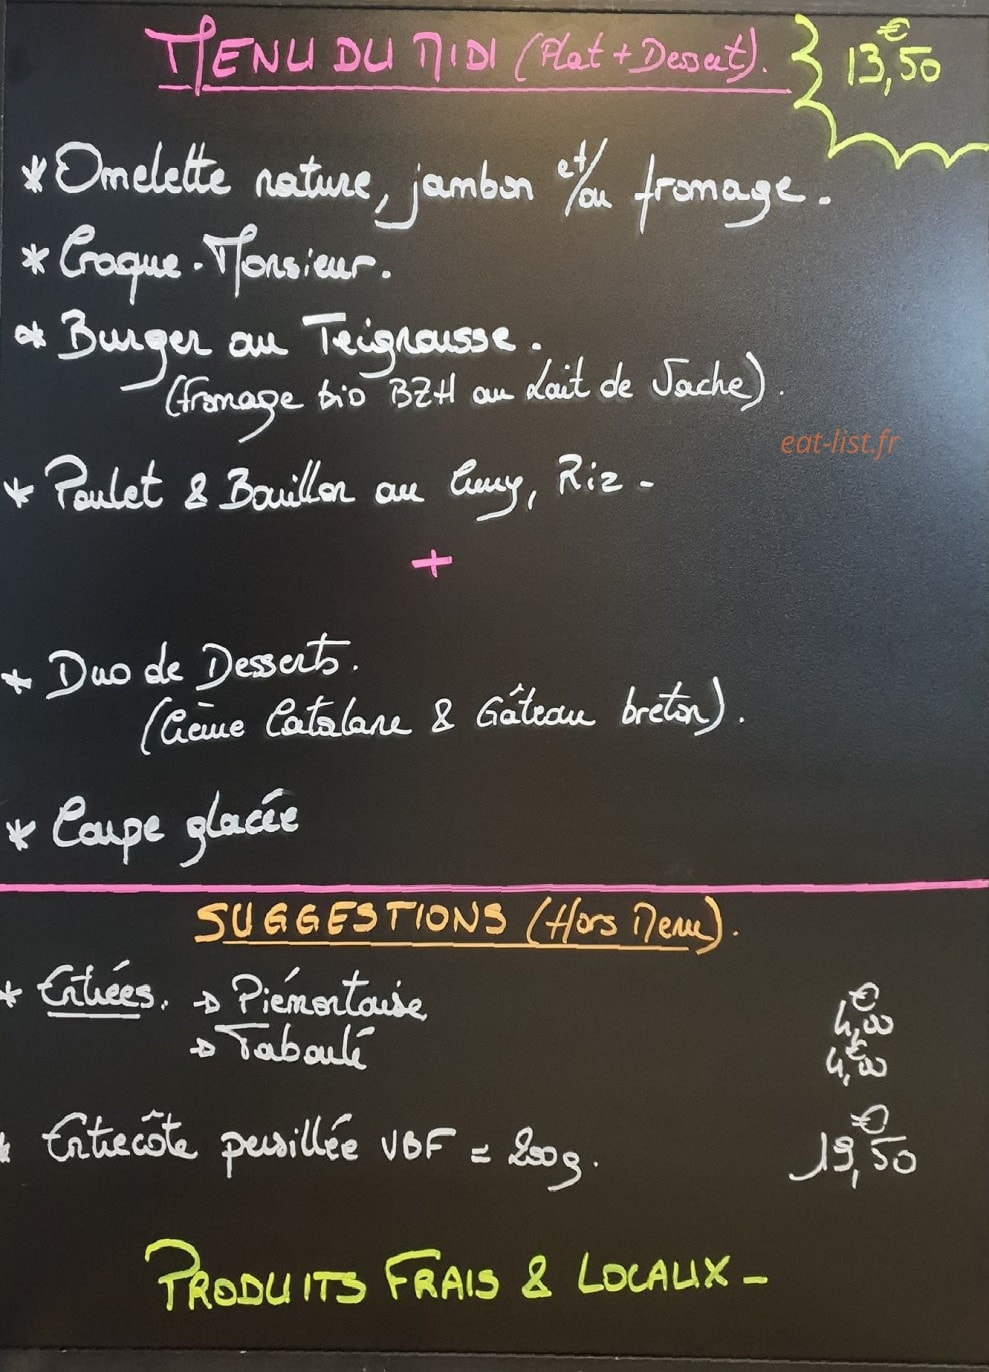 MENU DU MIDI (Plat + Dessert). 13,50 €
* Omelette nature, jambon et/ou fromage.
* Croque-Monsieur.
* Burger au Teignousse.
(fromage bio BZH au Lait de Vache).
eat-list.fr
* Poulet & Bouillon au Curry, Riz -
+
* Duo de Desserts.
(Crème Catalane & Gâteau breton).
* Coupe glacée
SUGGESTIONS (Hors Menu).
* Entrées. → Piémontaise 4,00 €
→ Taboulé 4,00 €
* Entrecôte persillée VBF = 200g. 19,50 €
PRODUITS FRAIS & LOCAUX -